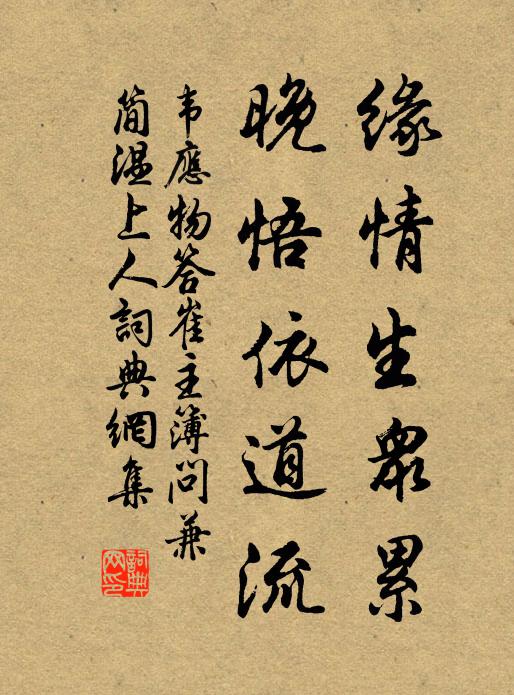 緣情生眾累
晚悟依道流
韦應物答崔主簿問兼
简温上人詞典網集
詞典網印